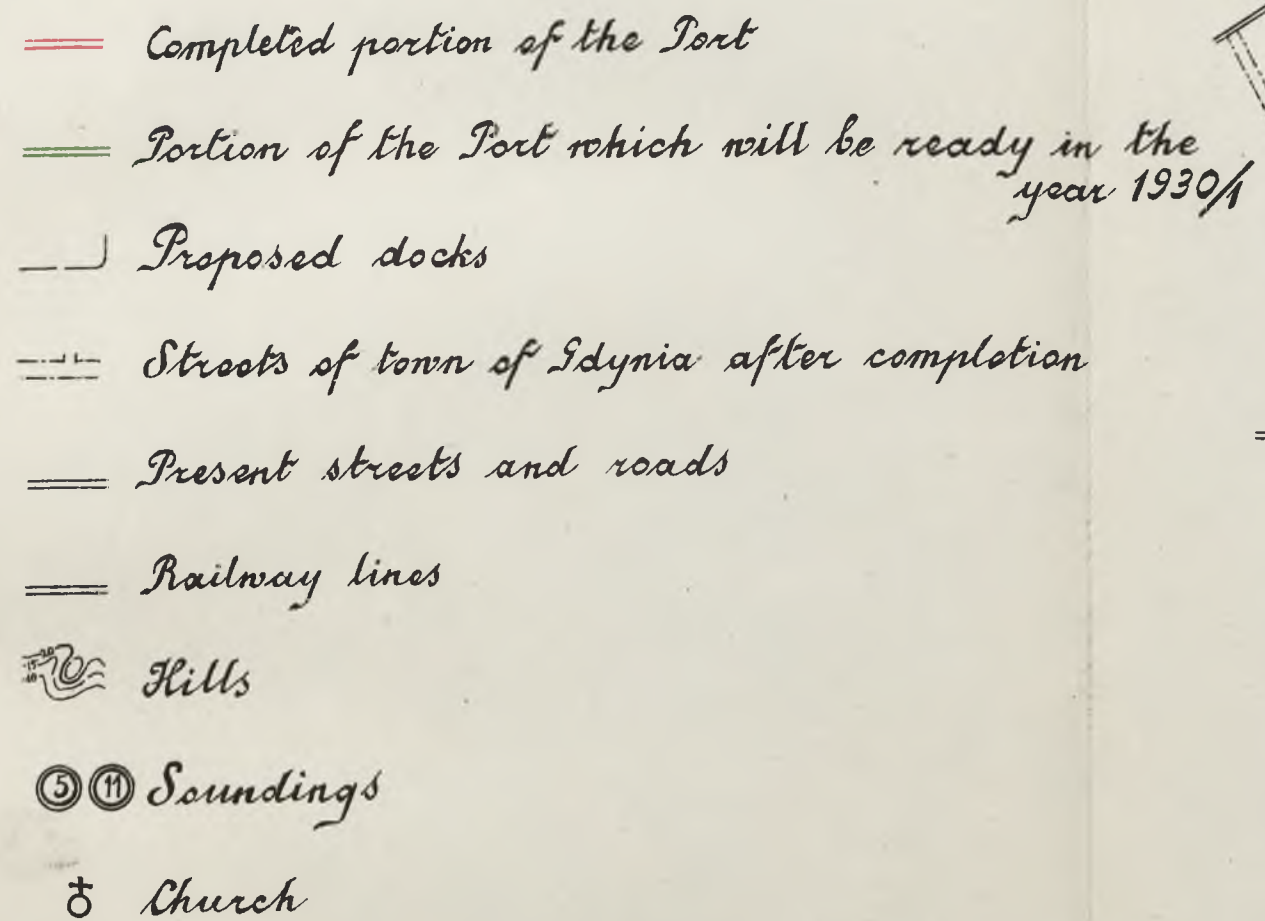 Completed portion of the Port
Portion of the Port which will be ready in the
year 1930/1
Proposed docks
Streets of town of Gdynia after completion
Present streets and roads
Railway lines
20
15
10
Hills
5 11 Soundings
Church